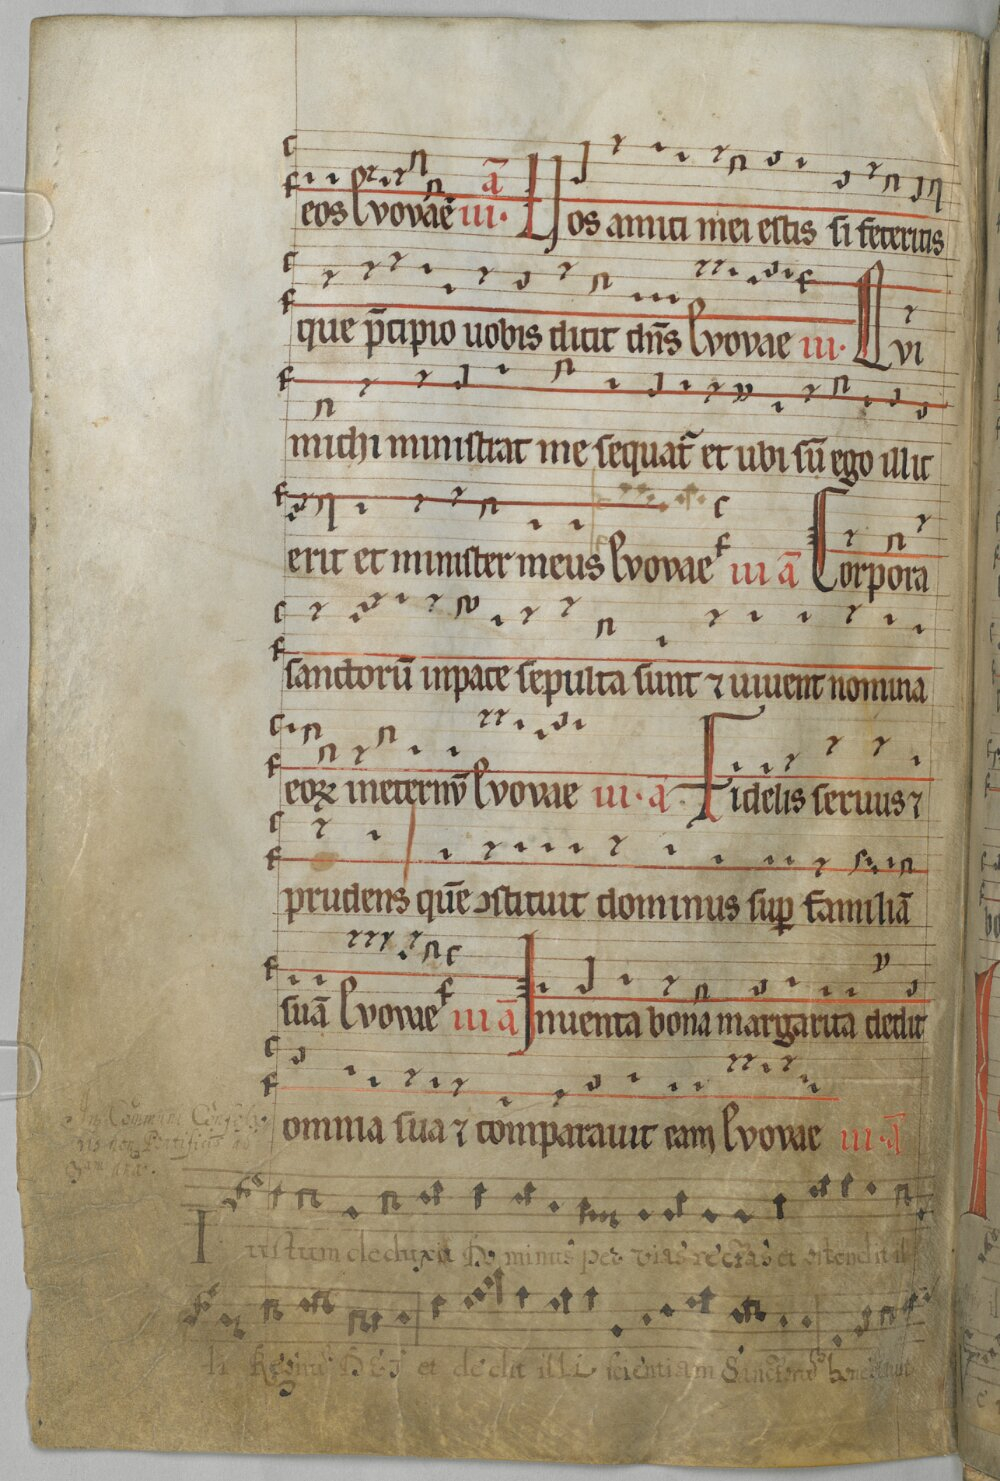 eos Evovae iii· a̅ Vos amici mei estis si feceritis
que p̅cipio uobis dicit dn̅s Evovae iii· Qvi
michi ministrat me sequat̃ et ubi su̅ ego illic
erit et minister meus Evovae iii a̅ Corpora
sanctoru̅ inpace sepulta sunt ⁊ uiuent nomina
eoꝝ ineternu̅ Evovae iii· a̅· Fidelis seruus ⁊
prudens que̅ ꝯstituit dominus sup̲ familia̅
sua̅ Evovae iii a̅ Inuenta bona margarita dedit
omnia sua ⁊ comparauit eam Evovae iii·a̅
In Communi Confess
ris non Pontificis ad
Iustum deduxit Dominus per vias rectas et ostendit il
li Regnu̅ DEI et dedit illi scientiam Sanctoru̅